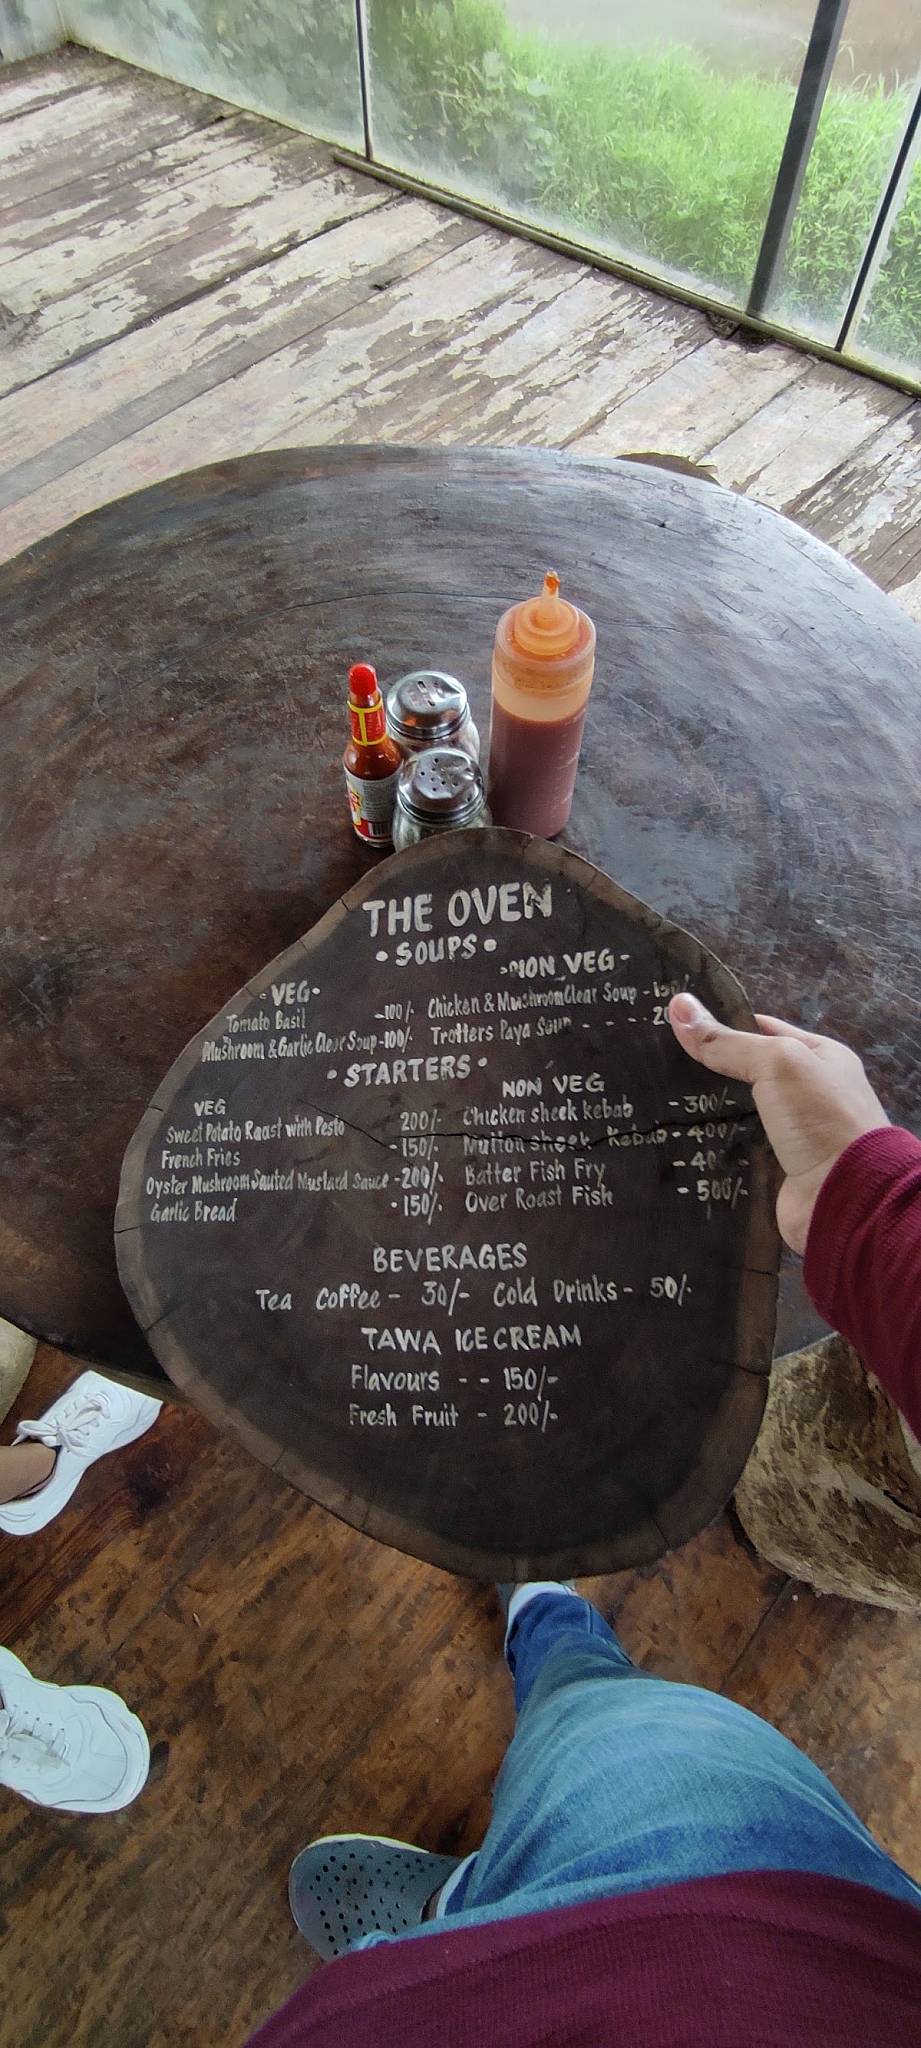 THE OVEN
• SOUPS •
• VEG •
Tomato Basil -100/-
Mushroom & Garlic Clear Soup -100/-
- NON VEG -
Chicken & Mushroom Clear Soup -150/-
Trotters Paya Soup - - - -
• STARTERS •
VEG
Sweet Potato Roast with Pesto 200/-
French Fries -150/-
Oyster Mushroom Sauted Mustard Sauce -200/-
Garlic Bread -150/-
NON VEG
Chicken sheek kebab -300/-
Mutton sheek Kebab - 400/-
Batter Fish Fry
Over Roast Fish - 500/-
BEVERAGES
Tea Coffee - 30/- Cold Drinks - 50/-
TAWA ICE CREAM
Flavours - - 150/-
Fresh Fruit - 200/-